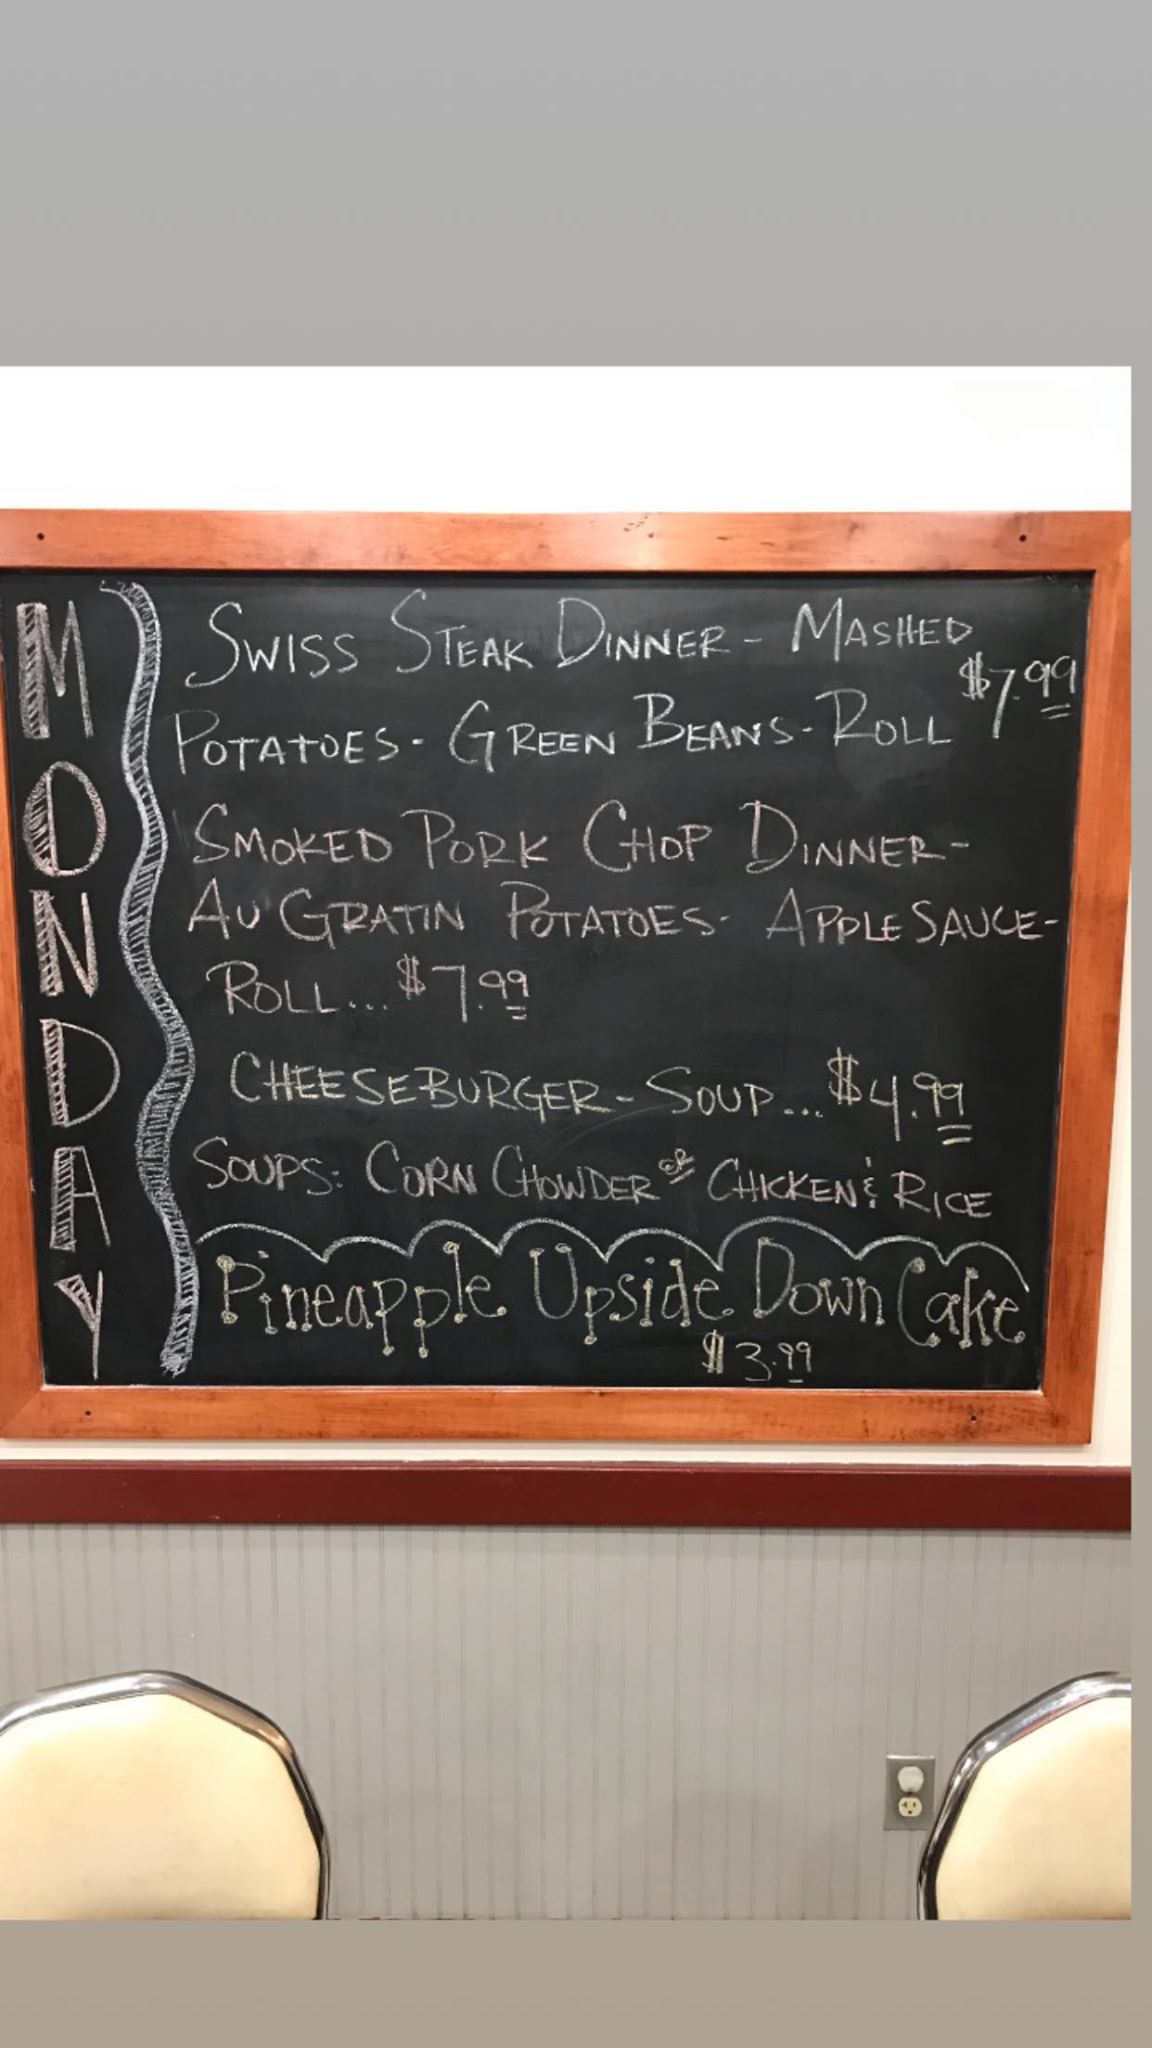 MONDAY
SWISS STEAK DINNER - MASHED
POTATOES - GREEN BEANS - ROLL $7.99
SMOKED PORK CHOP DINNER -
AU GRATIN POTATOES - APPLESAUCE -
ROLL... $7.99
CHEESEBURGER - SOUP... $4.99
SOUPS: CORN CHOWDER OR CHICKEN & RICE
Pineapple Upside Down Cake
$3.99